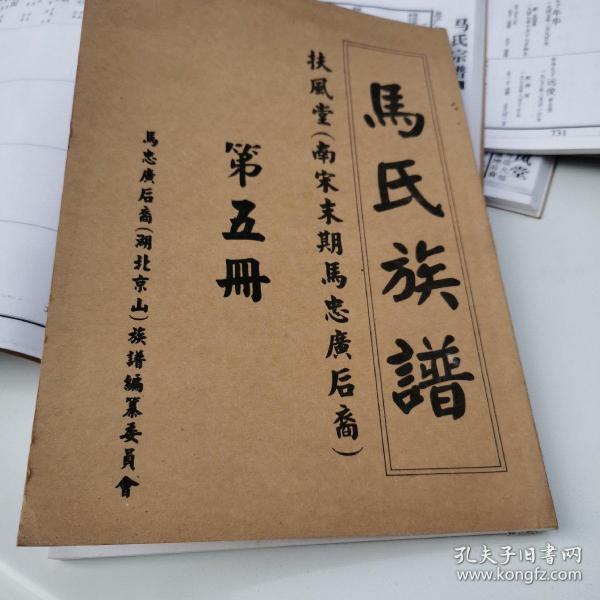 馬氏族譜
扶風堂(南宋末期馬忠廣后裔)
第五冊
馬忠廣后裔(湖北京山)族譜編纂委員會
马氏宗谱
731
風堂
孔夫子旧书网
www.kongfz.com